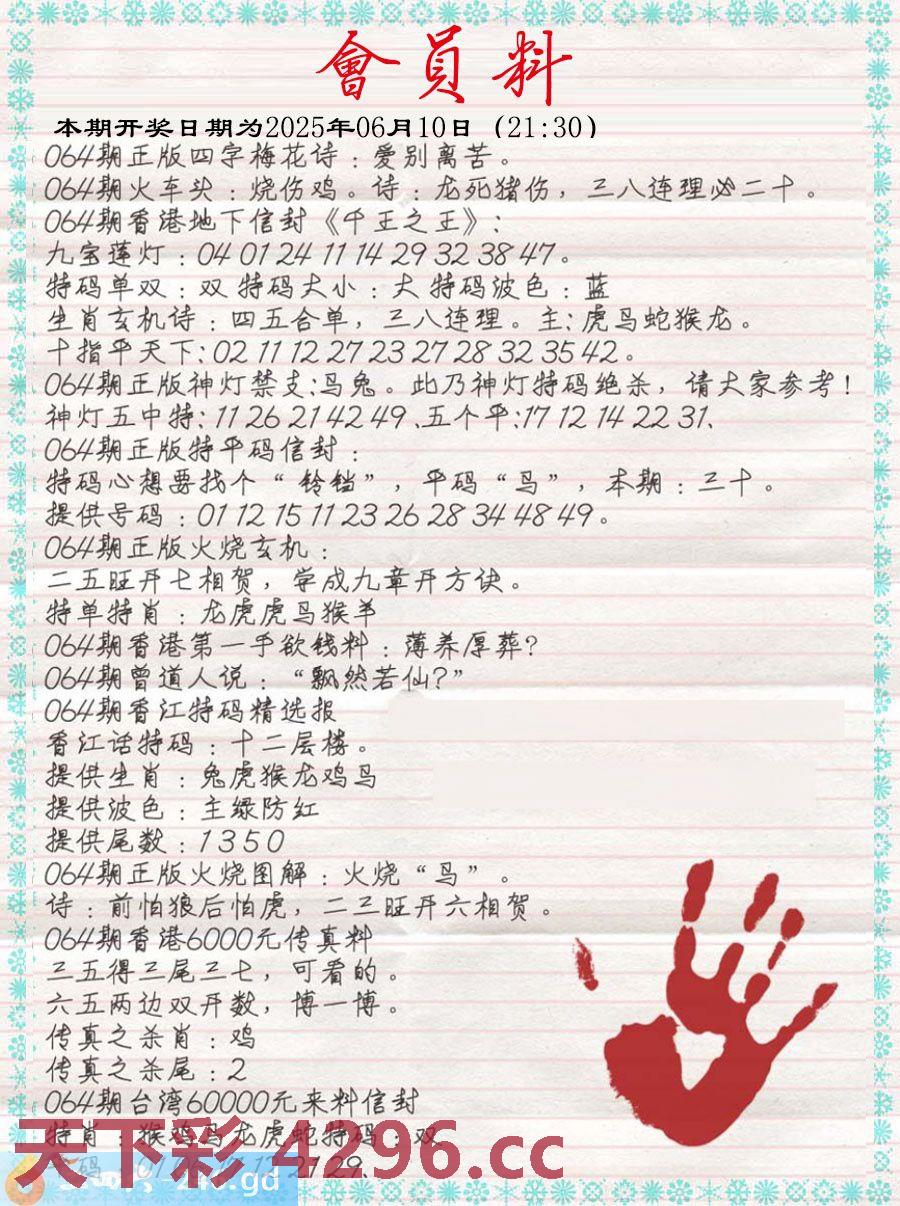 會員料
本期开奖日期为2025年06月10日（21:30）
064期正版四字梅花诗：爱别离苦。
064期火车头：烧伤鸡。诗：龙死猪伤，三八连理必二十。
064期香港地下信封《千王之王》：
九宝莲灯：04 01 24 11 14 29 32 38 47。
特码单双：双 特码大小：大 特码波色：蓝
生肖玄机诗：四五合单，三八连理。主：虎马蛇猴龙。
十指平天下：02 11 12 27 23 27 28 32 35 42。
064期正版神灯禁支：马兔。此乃神灯特码绝杀，请大家参考！
神灯五中特：11 26 21 42 49、五个平：17 12 14 22 31、
064期正版特平码信封：
特码心想要找个“铃铛”，平码“马”，本期：三十。
提供号码：01 12 15 11 23 26 28 34 48 49。
064期正版火烧玄机：
二五旺开七相贺，学成九章开方诀。
特单特肖：龙虎虎马猴羊
064期香港第一手欲钱料：薄养厚葬？
064期曾道人说：“飘然若仙？”
064期香江特码精选报
香江话特码：十二层楼。
提供生肖：兔虎猴龙鸡马
提供波色：主绿防红
提供尾数：1 3 5 0
064期正版火烧图解：火烧“马”。
诗：前怕狼后怕虎，二三旺开六相贺。
064期香港6000元传真料
三五得三尾三七，可看的。
六五两边双开数，博一博。
传真之杀肖：鸡
传真之杀尾：2
064期台湾60000元来料信封
特肖：猴鸡马龙虎蛇特码：双
天下彩4296.cc